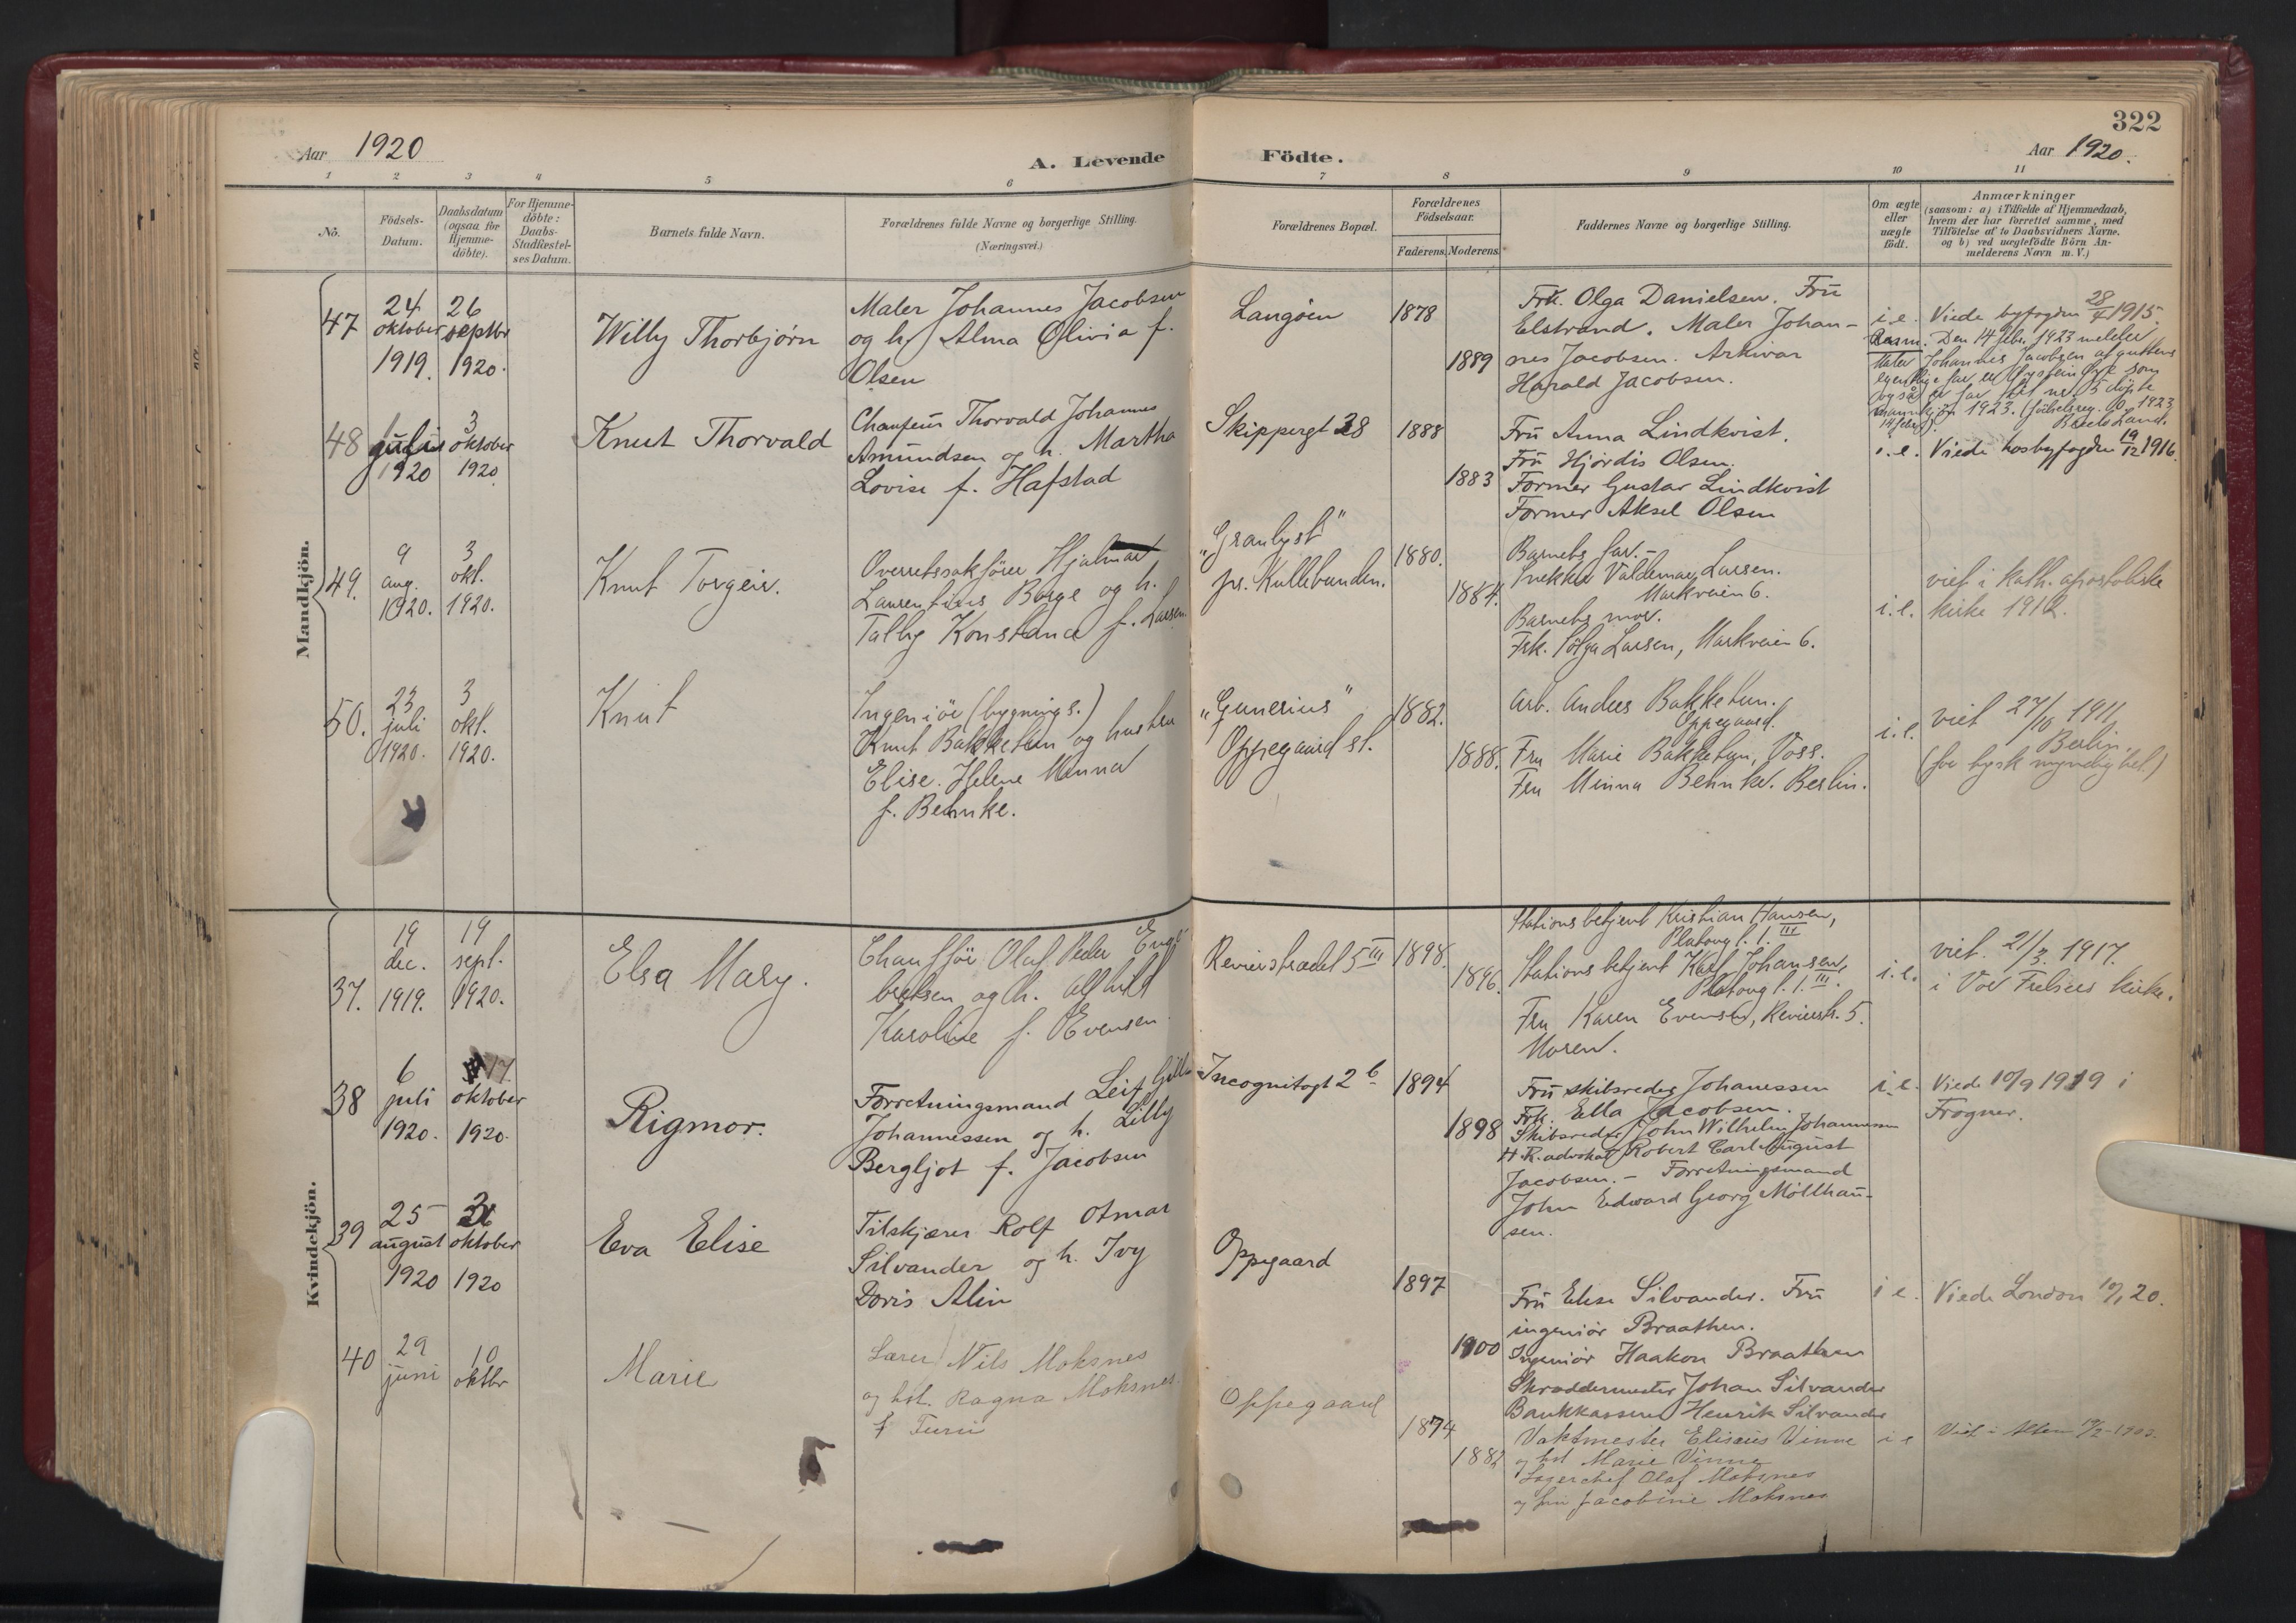 322
Aar 1920
A. Levende
Födte.
Aar 1920.
1 2 3 4 5 6 7 8 9 10 11
No.
Födsels-
Datum.
Daabsdatum
(ogsaa for
Hjemme-
döbte).
For Hjemme-
döbte:
Daabs-
Stadfæstel-
ses Datum.
Barnets fulde Navn.
Forældrenes fulde Navne og borgerlige Stilling.
(Næringsvei.)
Forældrenes Bopæl.
Forældrenes
Födselsaar.
Faderens. Moderens.
Faddernes Navne og borgerlige Stilling.
Om ægte
eller
uægte
födt.
Anmærkninger
(saasom: a) i Tilfælde af Hjemmedaab,
hvem der har forrettet samme, med
Tilföielse af to Daabsvidners Navne.
og b) ved uægtefödte Börn An-
melderens Navn m. V.)
Mandkjön.
47
24
oktober
1919.
26
septbr
1920.
Willy Thorbjørn
Maler Johannes Jacobsen
og h. Alma Olivia f.
Olsen
Langöien
1878
1889
Frk. Olga Danielsen. Fru
Elstrand. Maler Johan-
nes Jacobsen. Arkivar
Harald Jacobsen.
i.e.
Viede byfogden 28/4 1915.
Anm. Den 14 febr. 1923 melder
Maler Johannes Jacobsen at guttens
egentlige far er
også er far til nr. 5 döpte
mannkjön 1923. (fødselsreg. 1923
48
juli
1920
3
oktober
1920
Knut Thorvald
Chaufeur Thorvald Johannes
Amundsen og h. Martha
Lovise f. Hafstad
Skippergt 28
1888
1883
Fru Anna Lindkvist.
Fru Hjørdis Olsen.
Former Gustav Lindkvist
Former Aksel Olsen
i.e.
Viede hos byfogden 19/12 1916.
49.
9
aug.
1920.
3
okt.
1920.
Knut Torgeir.
Overretssakfører Hjalmar
Laurentius Borge og h.
Valby Konstance f. Larsen
"Granlyst"
pr. Kullebunden.
1880.
1884.
Barnets far. -
Snekker Valdemar Larsen.
Markveien 6.
Barnets mor.
Frk. Solga Larsen, Markveien 6.
i.e.
viet i kath. apostoliske
kirke 1910.
50.
23
juli
1920.
3
okt.
1920.
Knut
Ingeniör (bygnings.)
Knut Bakketun og hustru
Elise Helene Minna
f. Behnke.
"Gunerius"
Oppegaard st.
1882.
1888.
Arb. Anders Bakketun.
Oppegaard.
Fru Marie Bakketun, Voss.
Fru Minna Behnke. Berlin.
i.e.
viet 27/10 1911
Berlin.
(for tysk myndighet)
Kvindekjön.
37.
19
dec.
1919.
19
sept.
1920.
Elsa Mary.
Chaufför Olaf Peder Enge-
bretsen og h. Alfhild
Karoline f. Evensen.
Revierstrædet 5 III
1898.
1896.
Stationsbetjent Kristian Hansen,
Platoug. 1. III
Stationsbetjent Karl Johansen,
Platoug. 1. III.
Fru Karen Evensen, Revierstr. 5.
Moren.
i.e.
viet. 21/3. 1917.
i Vor Frelsers kirke.
38
6
juli
1920.
17.
oktober
1920.
Rigmor.
Forretningsmand Leif
Johannessen og h. Lilly
Bergljot f. Jacobsen
Incognitogt 2 b
1894
1898
Fru skibsreder Johanessen
Frk. Ella Jacobsen.
Skibsreder John Wilhelm Johannessen
H.R. advokat Robert Carl August
Jacobsen. - Forretningsmand
John Edward Georg Möllhau-
sen.
i.e.
Viede 10/9 1919 i
Frogner.
39
25
august
1920
oktober
1920
Eva Elise
Tilskjærer Rolf Otmar
Silvander og h. Ivy
Doris Alin
Oppegaard
1897
1900
Fru Elise Silvander. Fru
ingeniør Braathen.
Ingeniør Haakon Braathen
Skræddermester Johan Silvander
Bankkasserer Henrik Silvander
i e.
Viede London 10/1 20.
40
29
juni
10
oktbr
Marie
Lærer Nils Moksnes
og hst. Ragna Moksnes
f Turi
Oppegaard
1874
1882
Vaktmester Eliseus Vinne
og hst Marie Vinne
Lagerchef Olaf Moksnes
og fru Jacobine Moksnes
i e
Viet i Alten